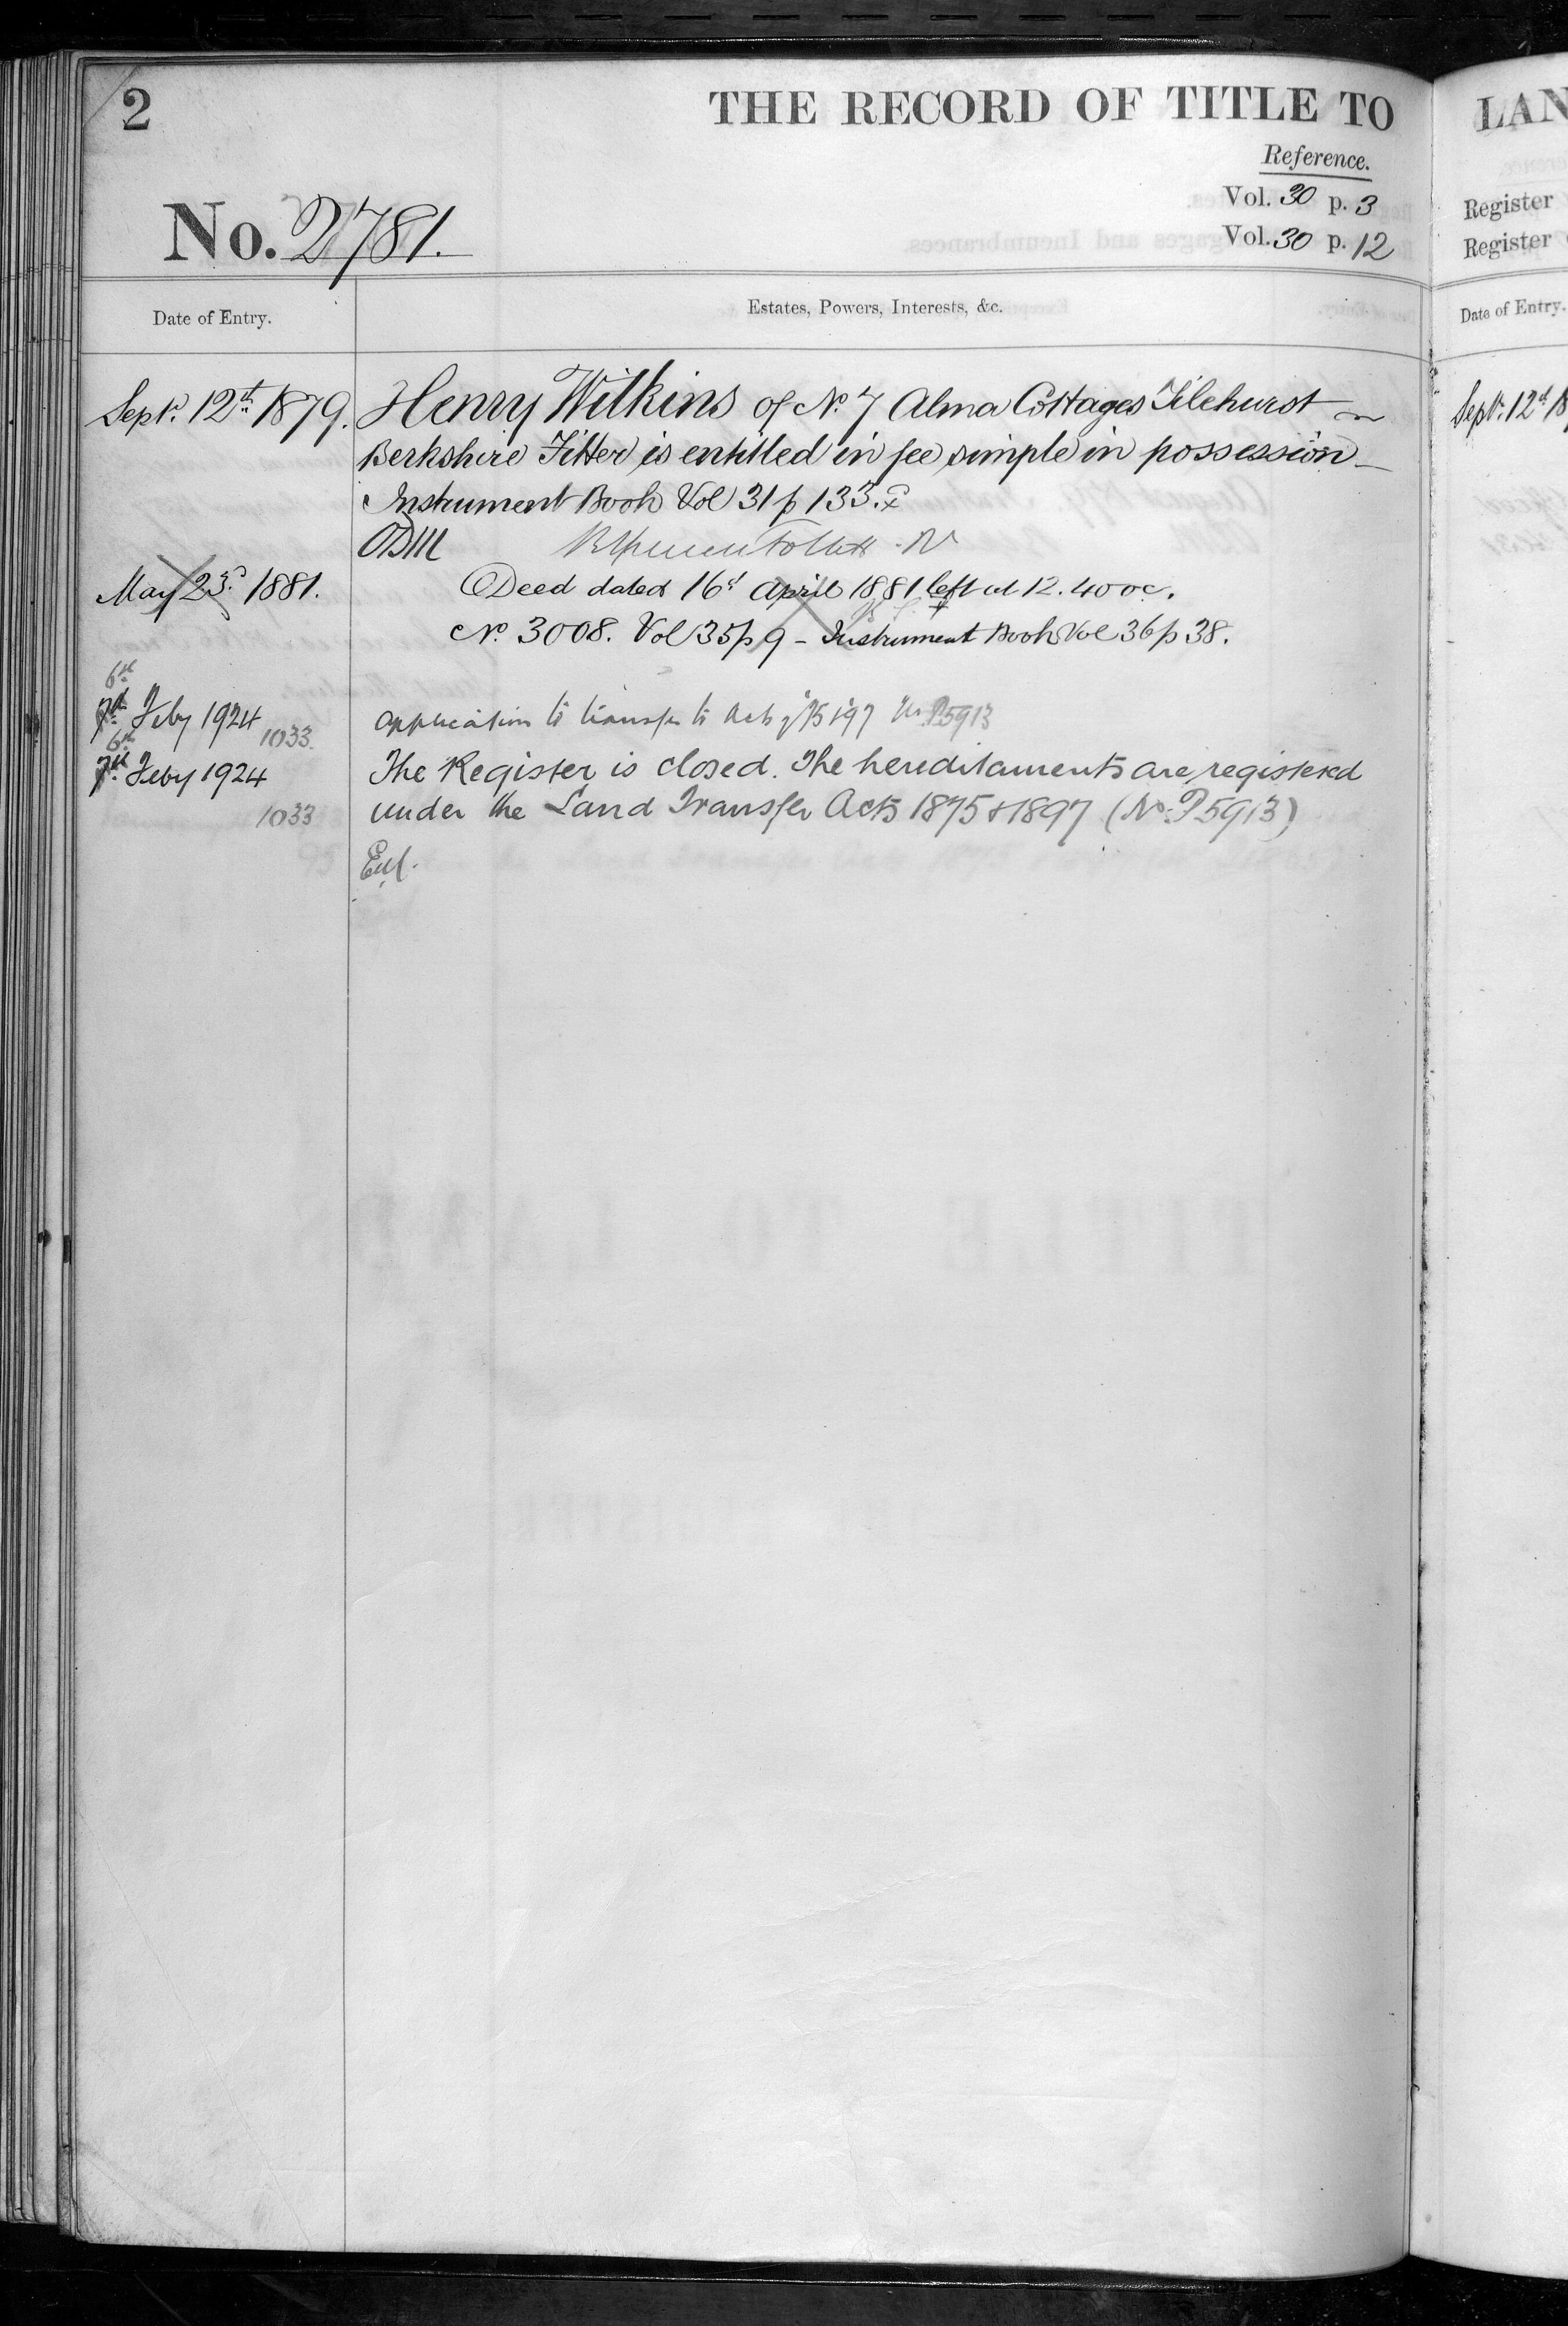 2
THE RECORD OF TITLE TO
Reference.
Vol. 30 p. 3
No. 2781.
Vol. 30 p. 12
Date of Entry.
Estates, Powers, Interests, &c.
Sept. 12th 1879.
Henry Wilkins of No. 7 Alma Cottages Tilehurst
Berkshire Fitter is entitled in fee simple in possession
Instrument Book Vol 31 p 133.
May 23d. 1881.
Deed dated 16th April 1881 left at 12.40 oc.
No. 3008. Vol 35 p 9 - Instrument Book Vol 36 p 38.
6th
7th Feby 1924
1033
application to transfer to Acts of 75 & 97 No P5913
6th
7th Feby 1924
The Register is closed. The hereditaments are registered
1033
under the Land Transfer Acts 1875 & 1897 (No. P5913)
LAN
Register
Register
Date of Entry.
Sept. 12th 18